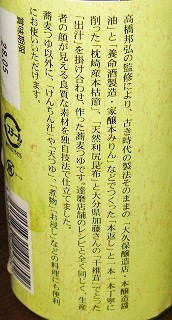 高橋邦弘の監修により、古き時代の製法そのままの「大久保醸造店・本醸造醤
油」と「養命酒製造・家醸本みりん」などでつくった「本返し」と一本一本丁寧に
削った「枕崎産本枯節」、「天然利尻昆布」と大分県加藤さんの「干椎茸」でとった
「出汁」を掛け合わせ、作った蕎麦つゆです。達磨店舗のレシピと全く同じく、生産
者の顔が見える良質な素材を独自技法で仕立てました。
蕎麦つゆ以外に、「けんちん汁」や「天つゆ」、「煮物」「お浸し」などの料理にも便利
にお使いいただけます。
賞味期限